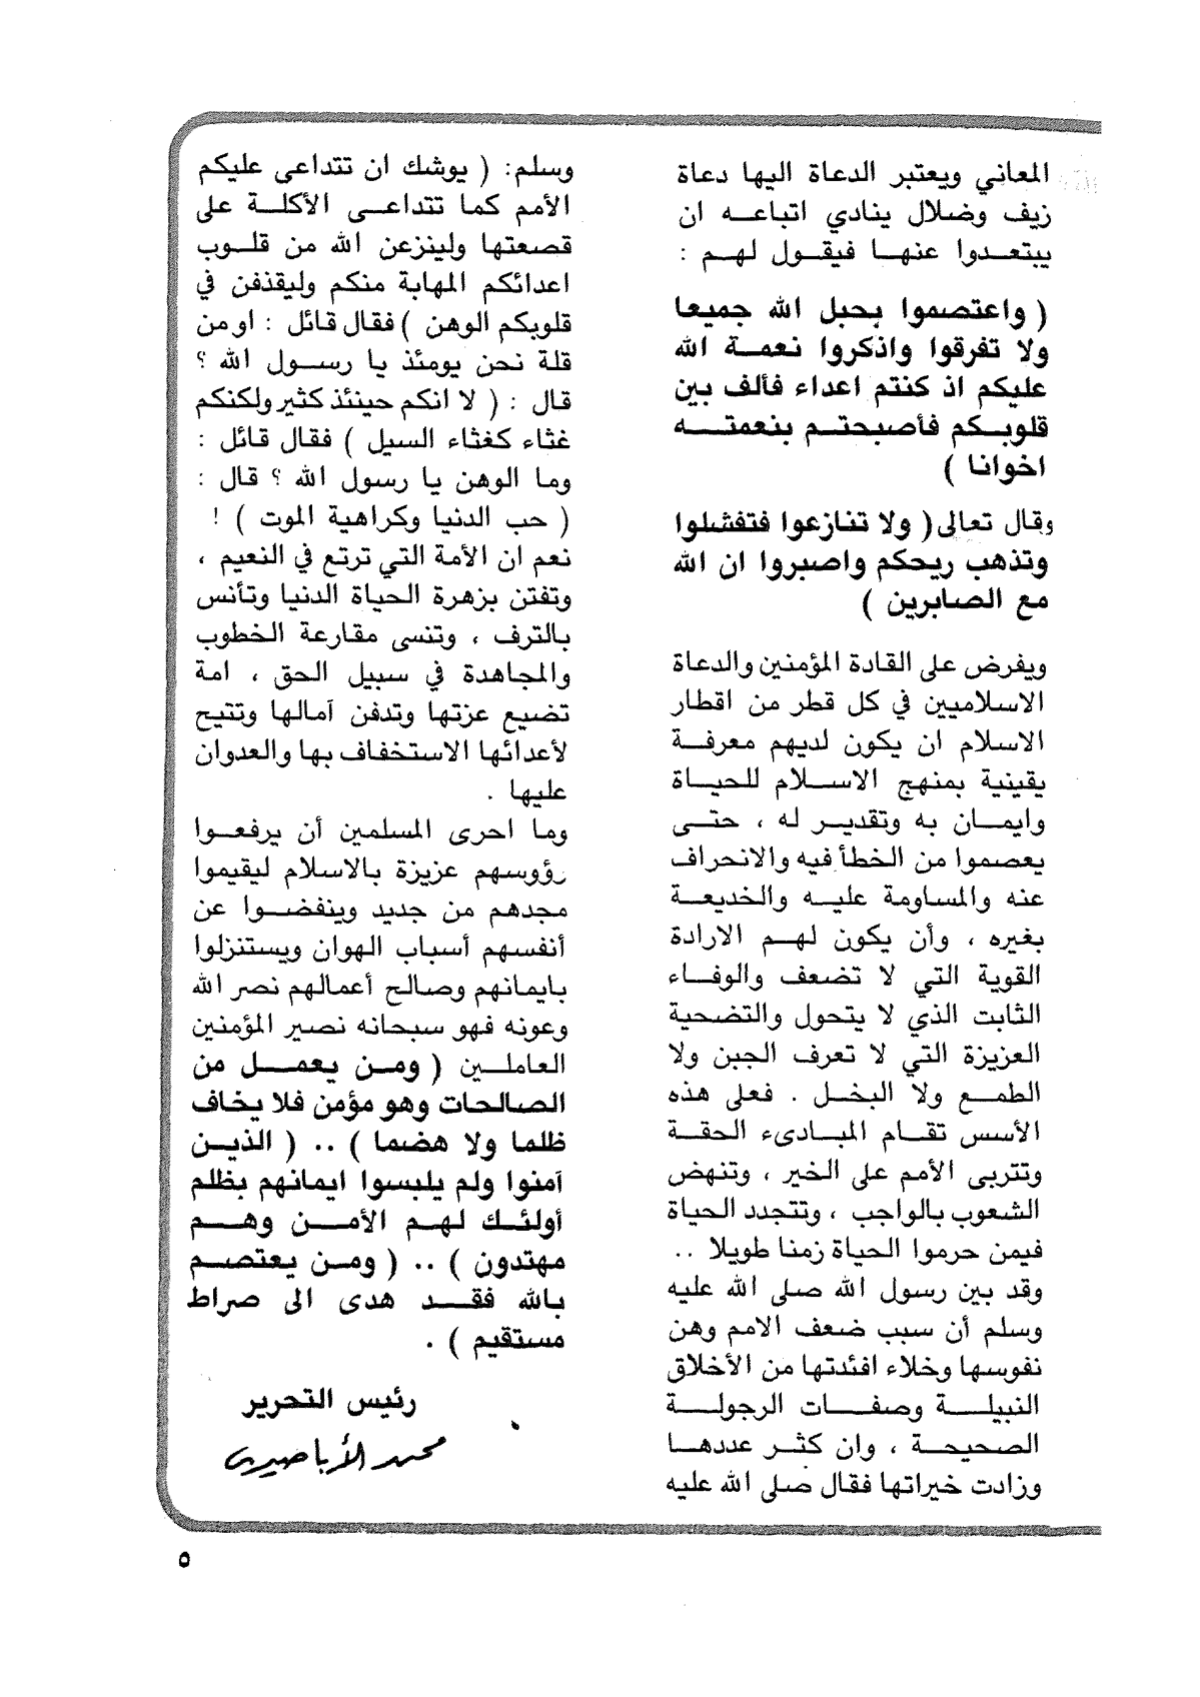 المعاني ويعتبر الدعاة اليها دعاة
زيف وضلال ينادي اتباعه ان
يبتعدوا عنها فيقول لهم :
( واعتصموا بحبل الله جميعا
ولا تفرقوا واذكروا نعمة الله
عليكم اذ كنتم اعداء فألف بين
قلوبكم فأصبحتم بنعمته
اخوانا )
وقال تعالى( ولا تنازعوا فتفشلوا
وتذهب ريحكم واصبروا ان الله
مع الصابرين )
ويفرض على القادة المؤمنين والدعاة
الاسلاميين في كل قطر من اقطار
الاسلام ان يكون لديهم معرفة
يقينية بمنهج الاسلام للحياة
وايمان به وتقدير له ، حتى
يعصموا من الخطأ فيه والانحراف
عنه والمساومة عليه والخديعة
بغيره ، وأن يكون لهم الارادة
القوية التي لا تضعف والوفاء
الثابت الذي لا يتحول والتضحية
العزيزة التي لا تعرف الجبن ولا
الطمع ولا البخل . فعلى هذه
الأسس تقام المبادىء الحقة
وتتربى الأمم على الخير ، وتنهض
الشعوب بالواجب ، وتتجدد الحياة
فيمن حرموا الحياة زمنا طويلا ..
وقد بين رسول الله صلى الله عليه
وسلم أن سبب ضعف الامم وهن
نفوسها وخلاء افئدتها من الأخلاق
النبيلة وصفات الرجولة
الصحيحة ، وان كثر عددها
وزادت خيراتها فقال صلى الله عليه
وسلم: ( يوشك ان تتداعى عليكم
الأمم كما تتداعى الأكلة على
قصعتها ولينزعن الله من قلوب
اعدائكم المهابة منكم وليقذفن في
قلوبكم الوهن ) فقال قائل : او من
قلة نحن يومئذ يا رسول الله ؟
قال : ( لا انكم حينئذ كثير ولكنكم
غثاء كغثاء السيل ) فقال قائل :
وما الوهن يا رسول الله ؟ قال :
( حب الدنيا وكراهية الموت ) !
نعم ان الأمة التي ترتع في النعيم ،
وتفتن بزهرة الحياة الدنيا وتأنس
بالترف ، وتنسى مقارعة الخطوب
والمجاهدة في سبيل الحق ، امة
تضيع عزتها وتدفن آمالها وتتيح
لأعدائها الاستخفاف بها والعدوان
عليها .
وما احرى المسلمين أن يرفعوا
رؤوسهم عزيزة بالاسلام ليقيموا
مجدهم من جديد وينفضوا عن
أنفسهم أسباب الهوان ويستنزلوا
بايمانهم وصالح أعمالهم نصر الله
وعونه فهو سبحانه نصير المؤمنين
العاملين ( ومن يعمل من
الصالحات وهو مؤمن فلا يخاف
ظلما ولا هضما ) .. ( الذين
آمنوا ولم يلبسوا ايمانهم بظلم
أولئك لهم الأمن وهم
مهتدون ) .. ( ومن يعتصم
بالله فقد هدى الى صراط
مستقيم ) .
رئيس التحرير
محمد الأباصيري
٥